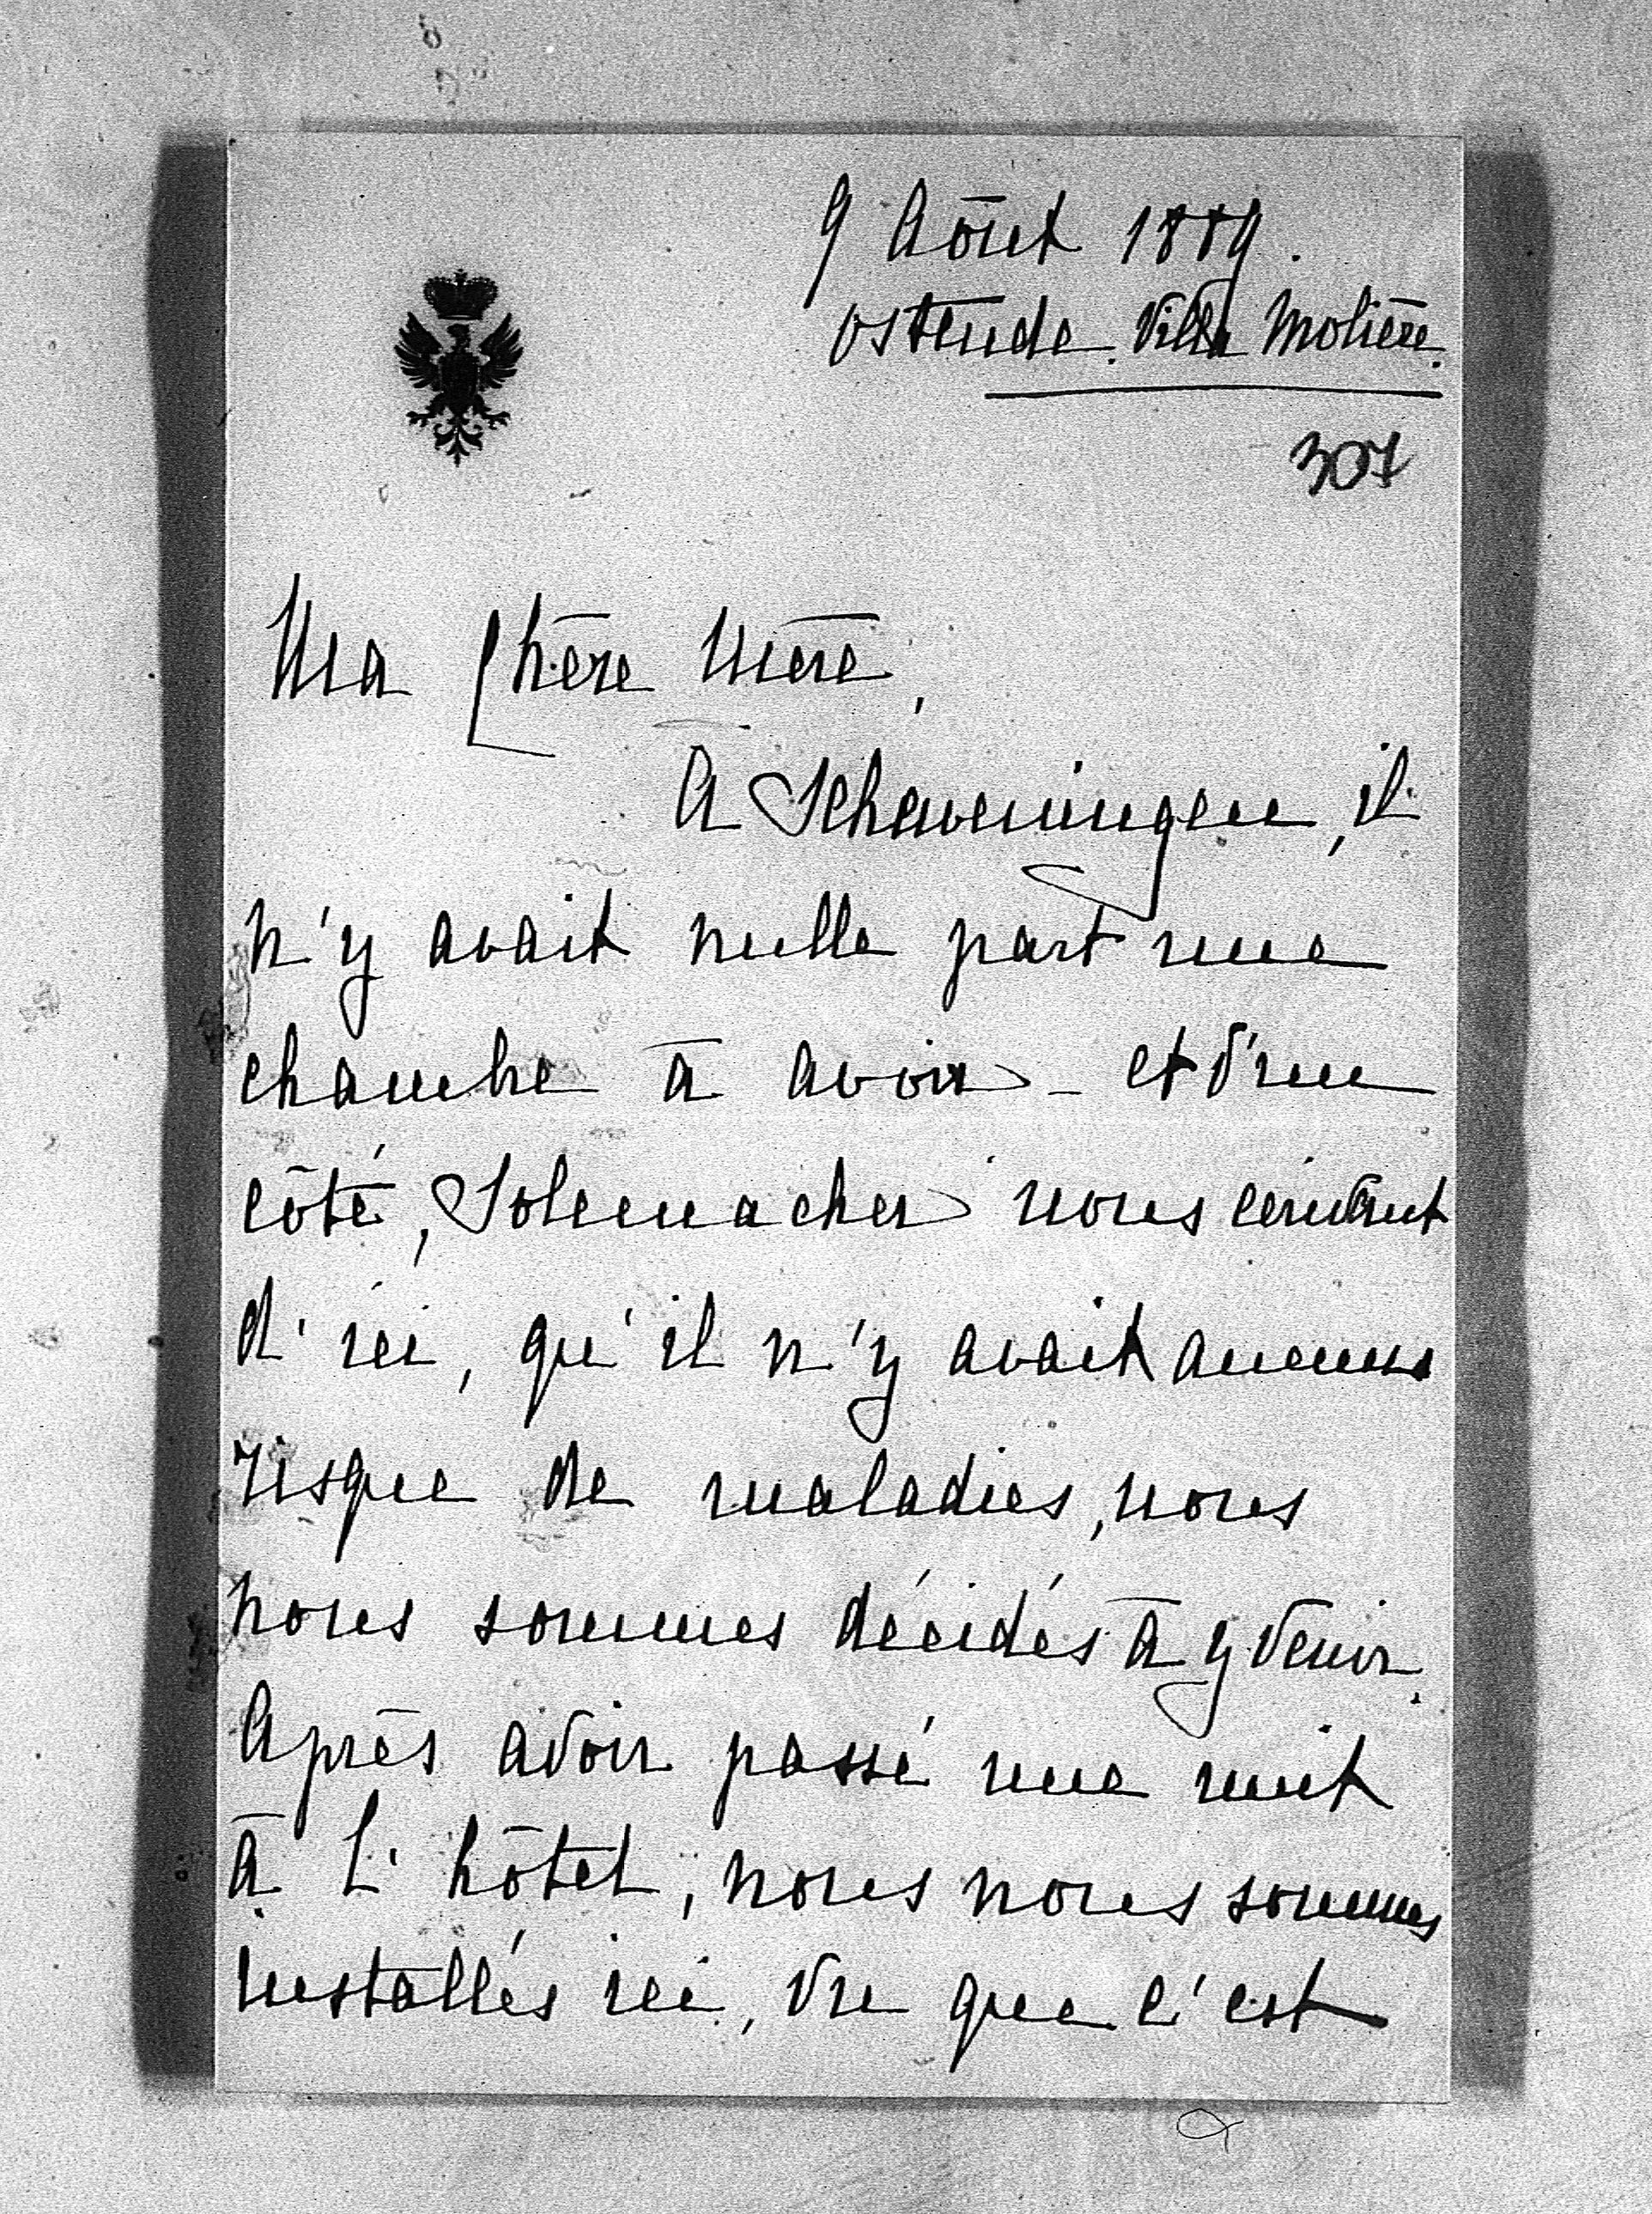 9 Août 1889.
Ostende. Villa Molière.
307
Ma Chère Mère,
A Scheweningen, il
n'y avait nulle part une
chambre à avoir - et d'un
côté, Solemacher nous écrivant
d'ici, qu'il n'y avait aucuns
risque de maladies, nous
nous sommes décidés à y venir.
Après avoir passé une nuit
à l'hôtel, nous nous sommes
installés ici, vu que c'est